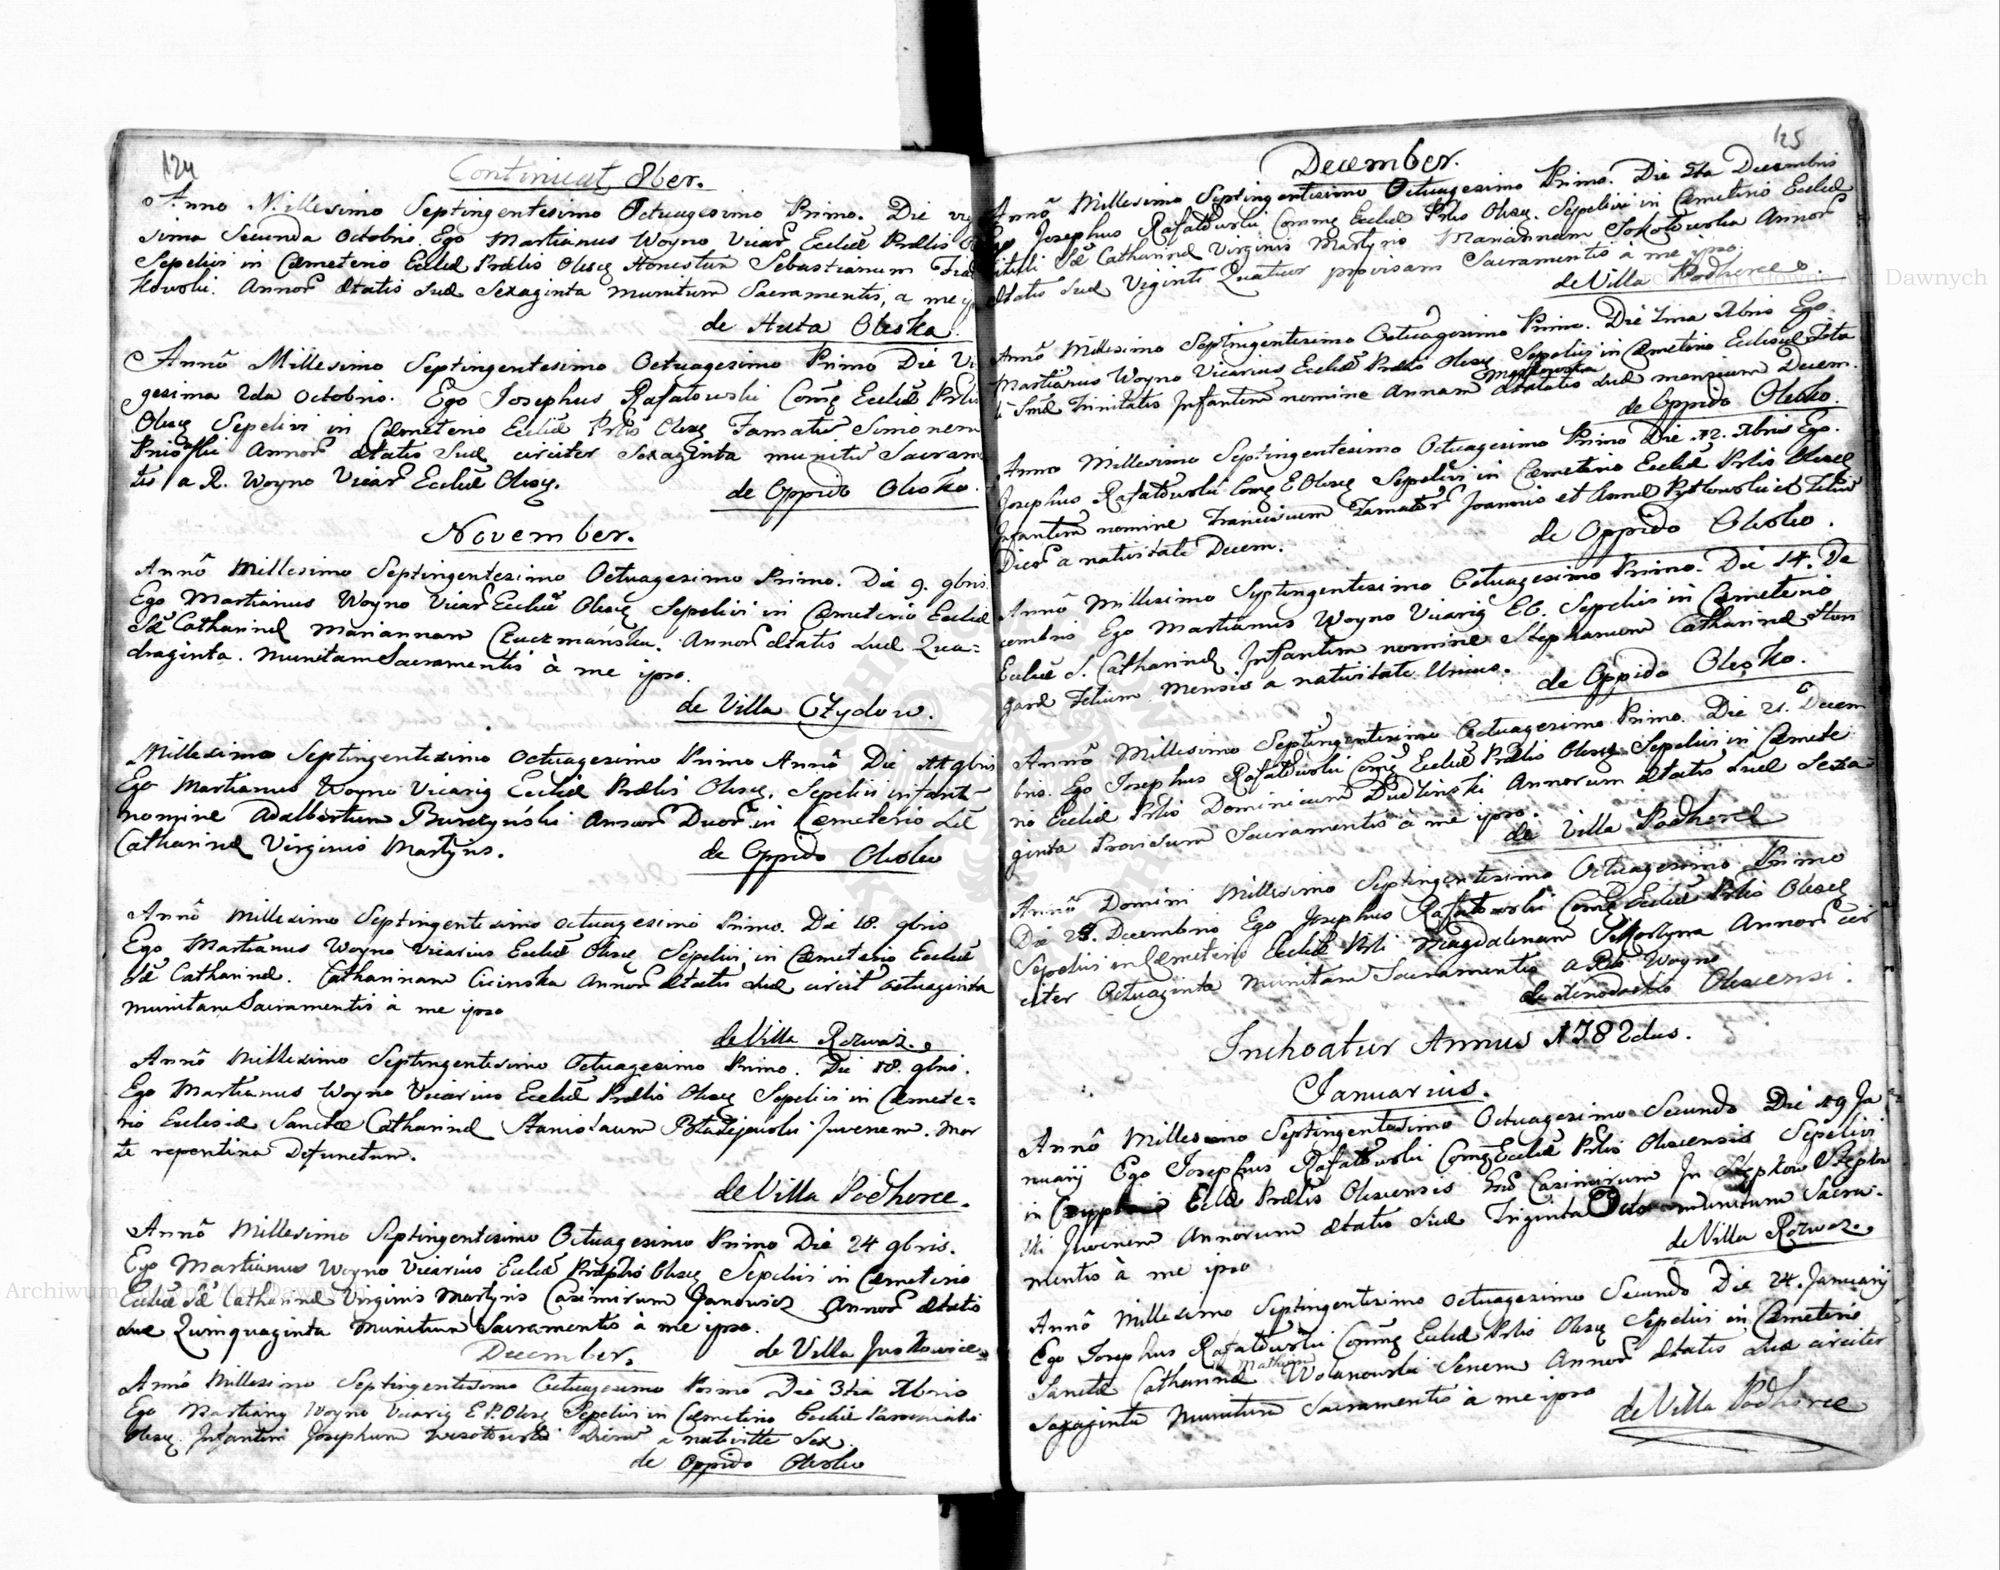 124
Continuat 8ber.
Anno Millesimo Septingentesimo Octuagesimo Primo. Die vige
sima Secunda Octobris. Ego Martianus Woyno Vicar Eccliae Prælis
Sepelivi in Cæmeterio Eccliæ Prælis Olesc Honestum Sebastianum
kowski. Annor ætatis suæ Sexaginta munitum Sacramentis, a me
de Huta Oleska.
Annô Millesimo Septingentesimo Octuagesimo Primo Die Vi
gesima 2da Octobris. Ego Josephus Rafałowski Comę Eccliæ Prlis
Olesę Sepelivi in Cæmeterio Eccliæ Prlis Olesę Famatū Simonem
Annor ætatis Suæ circiter Sexaginta munitū Sacram
tis a R. Woyno Vicar Eccliæ Olesę.
de Oppido Olesko.
November.
Annô Millesimo Septingentesimo Octuagesimo Primo. Die 9. 9bris.
Ego Martianus Woyno Vicar Eccliæ Olesę Sepelivi in Cæmeterio Eccliæ
Sæ Catharinæ Mariannam Annor ætatis suæ Qua=
draginta. Munitam Sacramentis à me ipso.
de Villa Czydow.
Millesimo Septingentesimo Octuagesimo Primo Annô Die 11 9bris
Ego Martianus Woyno Vicarię Eccliæ Prælis Olesę. Sepelivi infantē
nomine Adalbertum Burczyński Annor Duor in Cæmeterio Sæ
Catharinæ Virginis Martyris.
de Oppido Olesko
Annô Millesimo Septingentesimo Octuagesimo Primo. Die 18. 9bris
Ego Martianus Woyno Vicarius Eccliæ Olesę Sepelivi in Cæmeterio Eccliæ
Sæ Catharinæ. Catharinam Cicinska Annor ætatis suæ circit Octuaginta
munitam Sacramentis à me ipso
de Villa Rozwaz.
Annô Millesimo Septingentesimo Octuagesimo Primo. Die 18. 9bris.
Ego Martianus Woyno Vicarius Eccliæ Prælis Olesę Sepelivi in Cæmete=
rio Eclesiæ Sanctæ Catharinæ Stanislaum Błażejowski Juvenem. Mor
te repentina Defunctum.
de Villa Podhorce.
Annô Millesimo Septingentesimo Octuagesimo Primo Die 24 9bris.
Ego Martianus Woyno Vicarius Eccliæ Præplis Olesę Sepelivi in Cæmeterio
Eccliæ Sæ Catharinæ Virginis Martyris Casimirum Janowicz Annor ætatis
suæ Quinquaginta Munitum Sacramentis à me ipso.
de Villa Juskowice
December.
Annô Millesimo Septingentesimo Octuagesimo Primo Die 3tia Xbris
Ego Martianę Woyno Vicarię E P. Olesę Sepelivi in Cæmeterio Eccliæ Parochialis
Olesę. Infantem Josephum Dierum a nativitte Sex.
de Oppido Olesko
125
December.
Annô Millesimo Septingentesimo Octuagesimo Primo. Die 5ta Decembris
Ego Josephus Rafałowski Commę Eccliæ Prlis Olesę. Sepelivi in Cæmeterio Eccliæ
tituli Sæ Catharinæ Virginis Martyris Mariannam Sokołowska Annor
ætatis suæ Viginti Quatuor provisam Sacramentis à me ipso.
de Villa Podhorce
Annô Millesimo Septingentesimo Octuagesimo Primo. Die 7ma Xbris Ego
Martianus Woyno Vicarius Eccliæ Prælis Olesę Sepelivi in Cæmeterio Eclesiæ Titu
li Smæ Trinitatis Infantem nomine Annam ætatis suæ mensium Decem.
de Oppido Olesko.
Anno Millesimo Septingentesimo Octuagesimo Primo Die 12. Xbris Ego.
Josephus Rafałowski Comę E Olesę Sepelivi in Cæmeterio Eccliæ Prlis Olesę
Infantem nomine Franciscum Famator Joannis et Annæ Filiū
Dier a nativitate Decem.
de Oppido Olesko.
Annô Millesimo Septingentesimo Octuagesimo Primo. Die 14. De
cembris Ego Martianus Woyno Vicarię EO. Sepelivi in Cæmeterio
Eccliæ S. Catharinæ Infantem nomine Stephanum Catharinæ Hun
garæ Filium Mensis a nativitate Unius.
de Oppido Olesko.
Annô Millesimo Septingentesimo Octuagesimo Primo. Die 21. Decem
bris. Ego Josephus Rafałowski Comę Eccliæ Prælis Olesę Sepelivi in Cæmete
rio Eccliæ Prlis Dominicum Dudlinski Annorum ætatis suæ Sexa
ginta Provisum Sacramentis à me ipso.
de Villa Podhorce
Annô Domini Millesimo Septingentesimo Octuagesimo Primo
Die Decembris Ego Josephus Rafałowski Comę Eccliæ Prlis Olesę
Sepelivi in Cæmeterio Eccliæ Prli Magdalenam Annor cir
citer Octuaginta Munitam Sacramentis a Rdo Woyno
Olescensi.
Inchoatur Annus 1782dus.
Januarius.
Annô Millesimo Septingentesimo Octuagesimo Secundo Die 19 Ja
nuarij Ego Josephus Rafałowski Comę Eccliæ Prlis Olescensis Sepelivi
in Eclæ Prælis Olescensis Casimirum
ski Juvenem Annorum ætatis suæ Triginta Octo munitum Sacra-
mentis à me ipso
de Villa Rozwaz.
Annô Millesimo Septingentesimo Octuagesimo Secundo Die 24. Januarij
Ego Josephus Rafałowski Commę Eccliæ Prlis Olesę Sepelivi in Cæmeterio
Sanctæ Catharinæ Mathæum Wolanowski Senem Annor ætatis suæ circiter
Sexaginta Munitum Sacramentis à me ipso
de Villa Podhorce
Archiwum Główne Akt Dawnych
Archiwum Główne Akt Dawnych